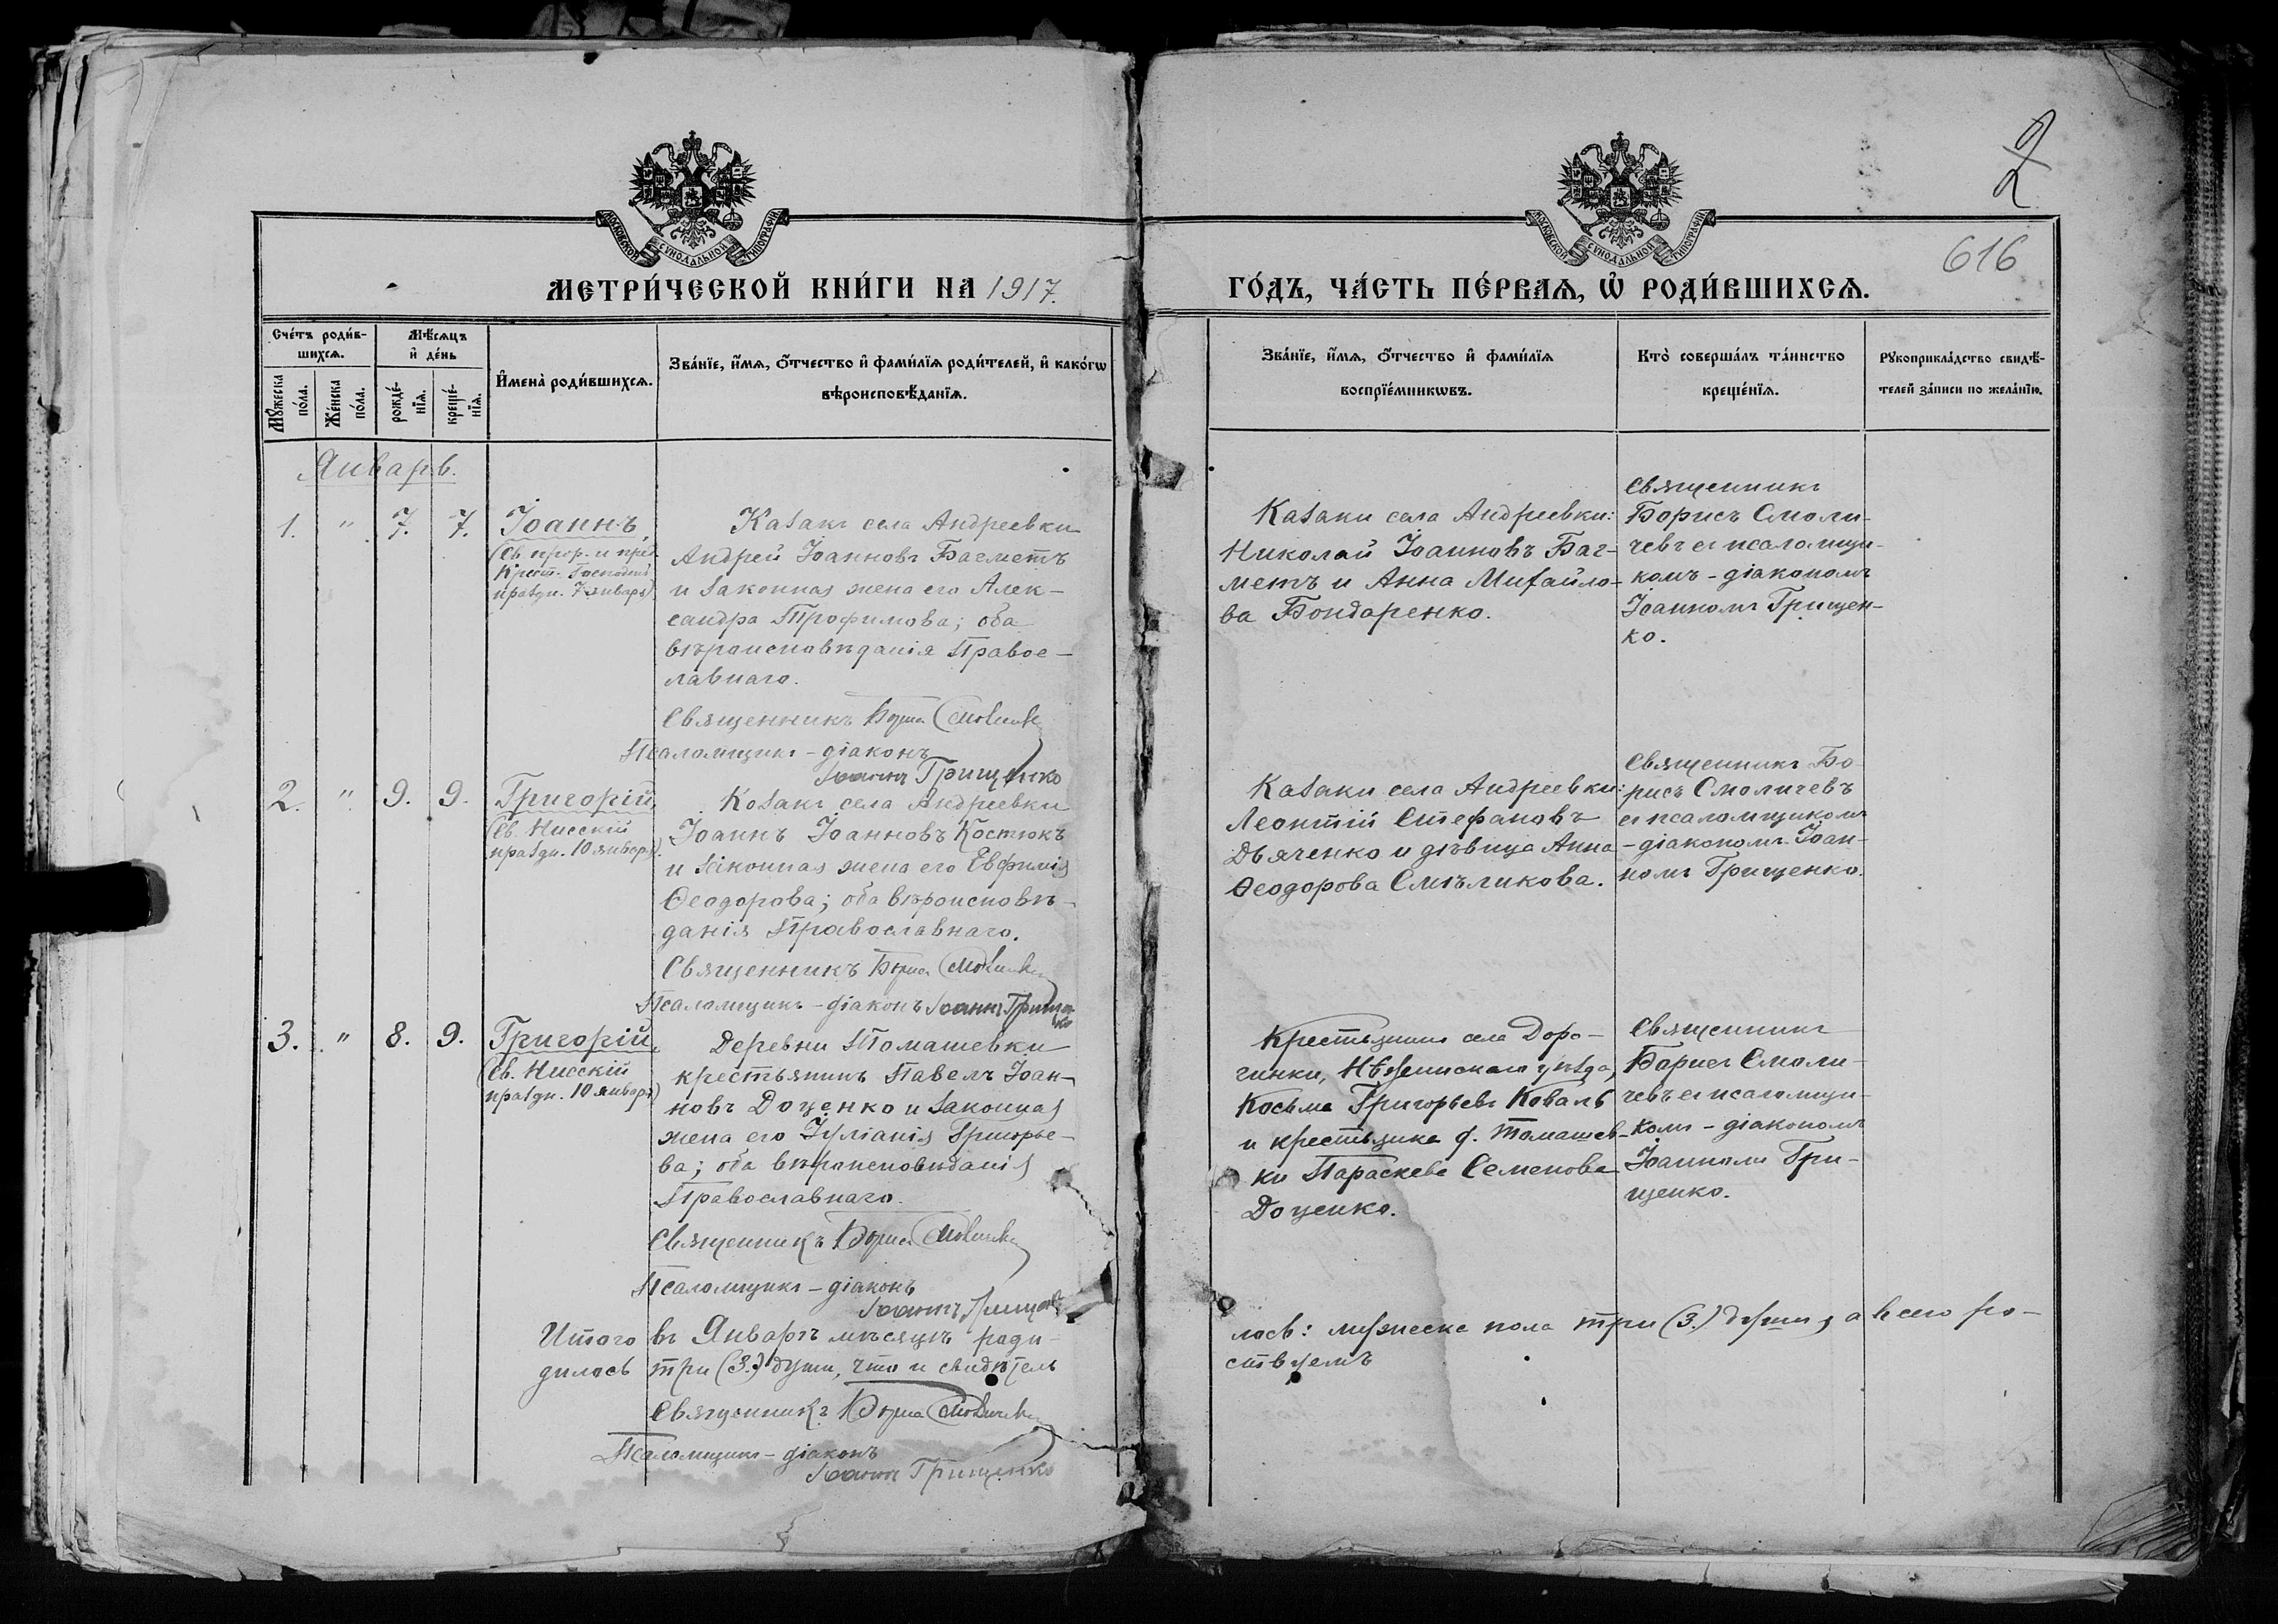 2
616
МОСКОВСКОЙ СѴНОДАЛЬНОЙ ТИПОГРАФІИ
МОСКОВСКОЙ СѴНОДАЛЬНОЙ ТИПОГРАФІИ
МЕТРИ́ЧЕСКОЙ КНИ́ГИ НА 1917.
ГО́ДЪ, ЧА́СТЬ ПЕ́РВАѦ, Ѡ҆ РОДИ́ВШИХСѦ.
Сче́тъ роди́в-
шихсѧ.
Мꙋ́жеска
по́ла.
Же́нска
по́ла.
Мѣ́сѧцъ
и҆ де́нь
рожде́-
нїѧ.
креще́-
нїѧ.
И҆мена̀ роди́вшихсѧ.
Зва́нїе, и҆́мѧ, ѻ҆́тчество и҆ фами́лїѧ роди́телей, и҆ како́гѡ
вѣроисповѣ́данїѧ.
Зва́нїе, и҆́мѧ, ѻ҆́тчество и҆ фами́лїѧ
воспрїе́мникѡвъ.
Кто̀ соверша́лъ та́инство
креще́нїѧ.
Рꙋкоприкла́дство свидѣ́-
телей за́писи по жела́нїю.
Январь.
1. " 7. 7. Іоаннъ,
(Св. прор. и пред.
Крест. Господня
праздн. 7 января)
Казакъ села Андреевки
Андрей Іоанновъ Багметъ
и законная жена его Алек-
сандра Трофимова; оба
вѣроисповѣданія Право-
славнаго.
Священникъ Борисъ Смоличевъ
Псаломщикъ-діаконъ
Іоаннъ Грищенко
Казаки села Андреевки:
Николай Іоанновъ Баг-
метъ и Анна Михайло-
ва Бондаренко.
Священникъ
Борисъ Смоли-
чевъ съ псаломщи-
комъ-діакономъ
Іоанномъ Грищен-
ко.
2. " 9. 9. Григорій,
(Св. Нисскій
праздн. 10 января).
Козакъ села Андреевки
Іоаннъ Іоанновъ Костюкъ
и законная жена его Евфимія
Ѳеодорова; оба вѣроисповѣ-
данія Православнаго.
Священникъ Борисъ Смоличевъ
Псаломщикъ-діаконъ Іоаннъ Грищен-
ко
Казаки села Андреевки:
Леонтій Стефановъ
Дьяченко и дѣвица Анна
Ѳеодорова Смѣликова.
Священникъ Бо-
рисъ Смоличевъ
съ псаломщикомъ
-діакономъ Іоан-
номъ Грищенко.
3. " 8. 9. Григорій,
(Св. Нисскій
праздн. 10 января)
Деревни Томашевки
крестьянинъ Павелъ Іоан-
новъ Доценко и законная
жена его Іуліанія Григорье-
ва; оба вѣроисповѣданія
Православнаго.
Священникъ Борисъ Смоличевъ
Псаломщикъ-діаконъ
Іоаннъ Грищенко
Крестьянинъ села Доро-
гинки, Нѣжинскаго уѣзда,
Косьма Григорьевъ Коваль
и крестьянка д. Томашев-
ки Параскева Семенова
Доценко.
Священникъ
Борисъ Смоли-
чевъ съ псаломщи-
комъ-діакономъ
Іоанномъ Гри-
щенко.
Итого въ Январѣ мѣсяцѣ роди-
лось: мужеска пола три (3.) души, а всего ро-
дилось три (3.) души, что и свидѣтель
ствуемъ
Священникъ Борисъ Смоличевъ
Псаломщикъ-діаконъ
Іоаннъ Грищенко